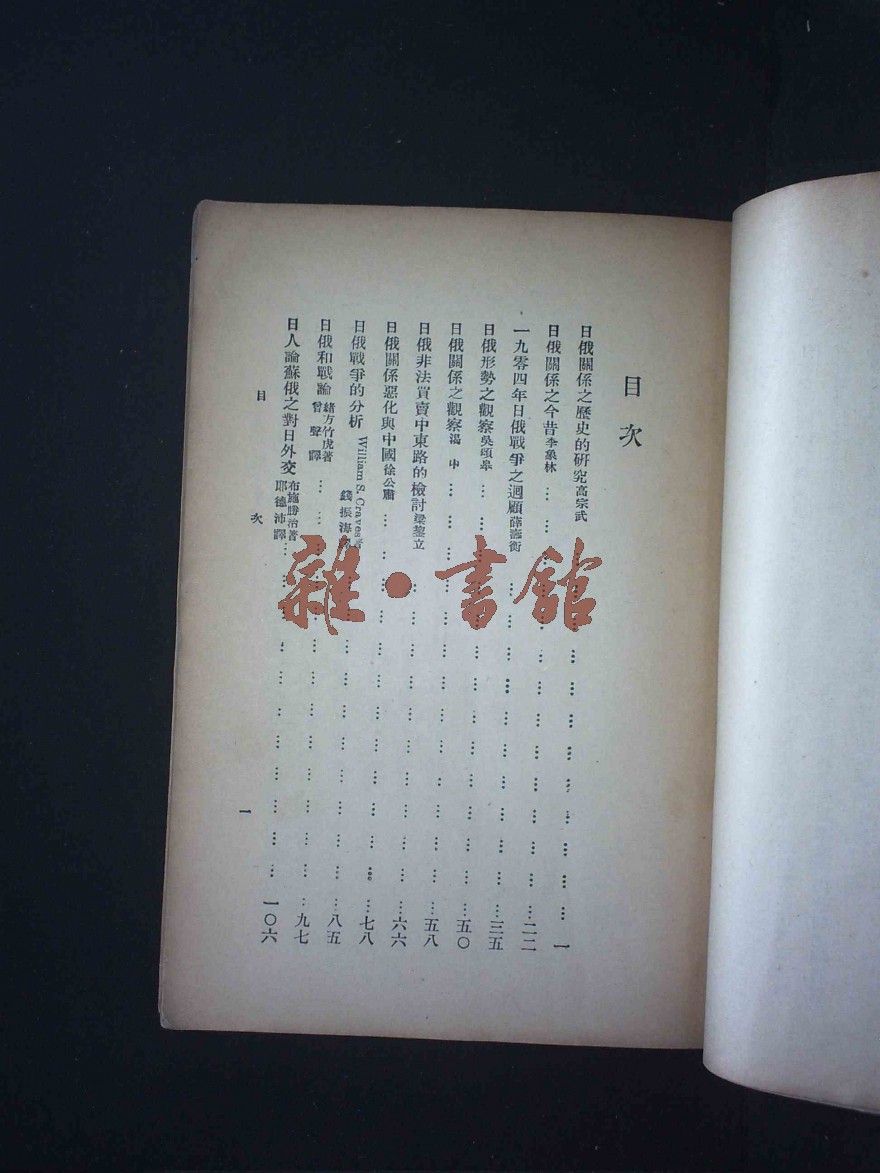 目次
日俄關係之歷史的研究 高宗武 … 一
日俄關係之今昔 李象林 … 二二
一九零四年日俄戰爭之迴顧 薛壽衡 … 三五
日俄形勢之觀察 吳頌皋 … 五〇
日俄關係之觀察 湯中 … 五八
日俄非法買賣中東路的檢討 梁鋆立 … 六六
日俄關係惡化與中國 徐公肅 … 七八
日俄戰爭的分析 William S. Graves著 錢振海譯 … 八五
日俄和戰論 緒方竹虎著 曾聲譯 … 九七
日人論蘇俄之對日外交 布施勝治著 鄢德沛譯 … 一〇六
目次 一
雜·書館